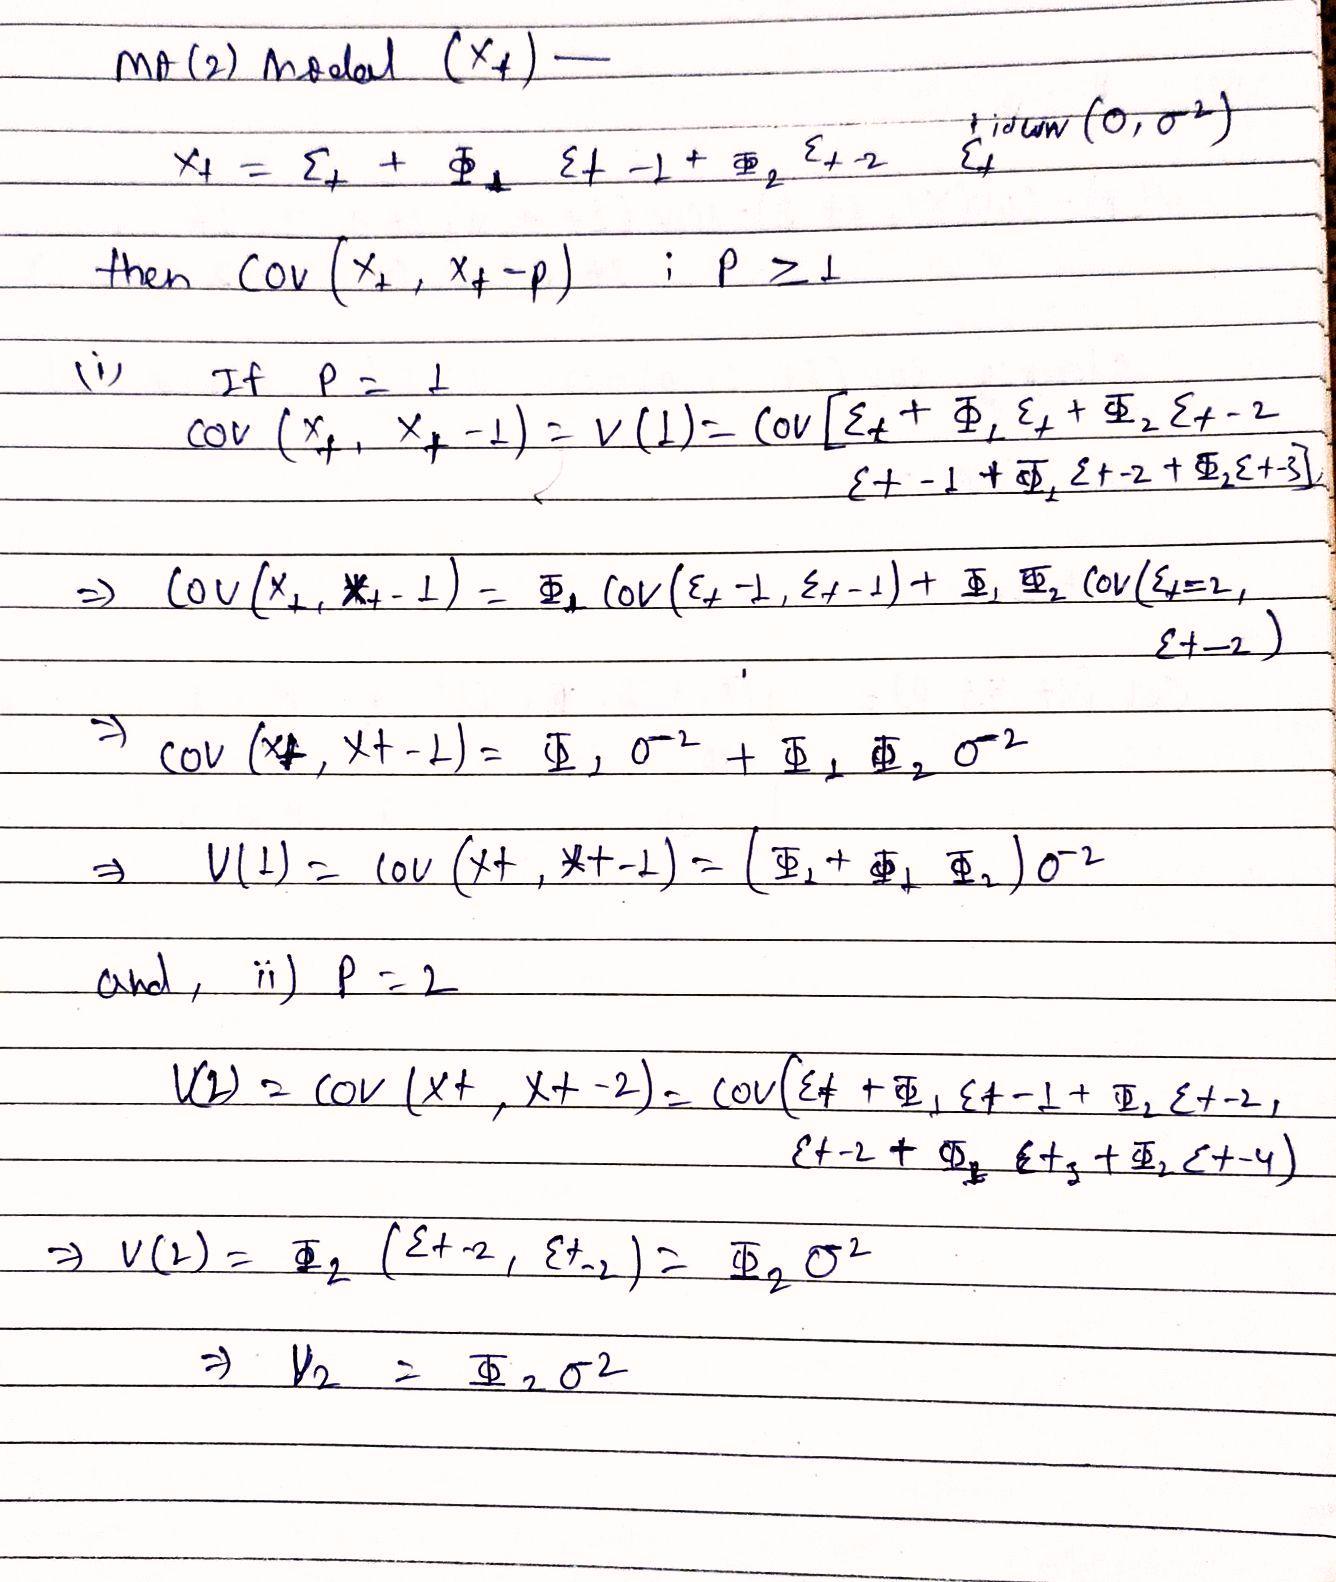 MA(2) Model (X_t) —
t iid WN (0, σ²)
X_t = Σ_t + Φ_1 Σt-1 + Φ_2 Σ_t-2 Σ_t
then COV (X_t, X_t-p) ; P ≥ 1
(i) If P = 1
COV (X_t, X_t-1) = V(1) = COV [Σ_t + Φ_1 Σ_t + Φ_2 Σ_t-2
Σt-1 + Φ_1 Σt-2 + Φ_2 Σt-3]
⇒ COV(X_t, X_t-1) = Φ_1 COV(Σ_t-1, Σ_t-1) + Φ_1 Φ_2 COV(Σ_t=2,
Σt-2)
⇒ COV (X_t, Xt-1) = Φ_1 σ² + Φ_1 Φ_2 σ²
⇒ V(1) = COV (Xt, Xt-1) = (Φ_1 + Φ_1 Φ_2) σ²
and, ii) P = 2
V(2) = COV (Xt, Xt-2) = COV(Σt + Φ_1 Σt-1 + Φ_2 Σt-2,
Σt-2 + Φ_1 Σt_3 + Φ_2 Σt-4)
⇒ V(2) = Φ_2 (Σt-2, Σt-2) = Φ_2 σ²
⇒ V_2 = Φ_2 σ²